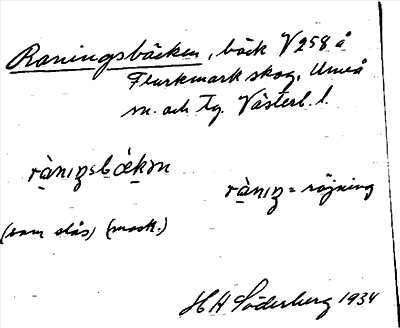 Raningsbäcken, bäck V 258 å
Flurkmark skog, Umeå
sn. och tg. Västerb. l.
rànıŋsbækən
rànıŋ = röjning
(som slås) (mask.)
H H Söderberg 1934